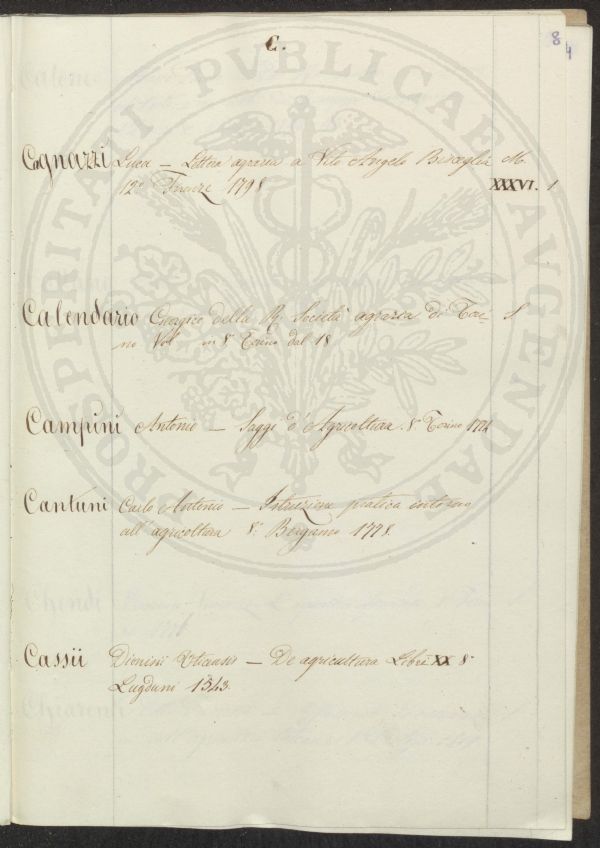 C.
8
4
Cagnazzi Luca — Lettera agraria a Vito Angelo Bisceglia M.
12° Firenze 1798 XXXVI. 1
Calendario Georgico della R. Società agraria di Tori- S
no Vol in 8° Torino dal 18
Campini Antonio — Saggi d'Agricoltura 8° Torino 1774
Cantuni Carlo Antonio — Istruzione pratica intorno
all'agricoltura 8° Bergamo 1778.
Cassii Dionisii Uticensis — De agricultura Libri XX 8°
Lugduni 1543.
PROSPERITATI PVBLICAE AVGENDAE